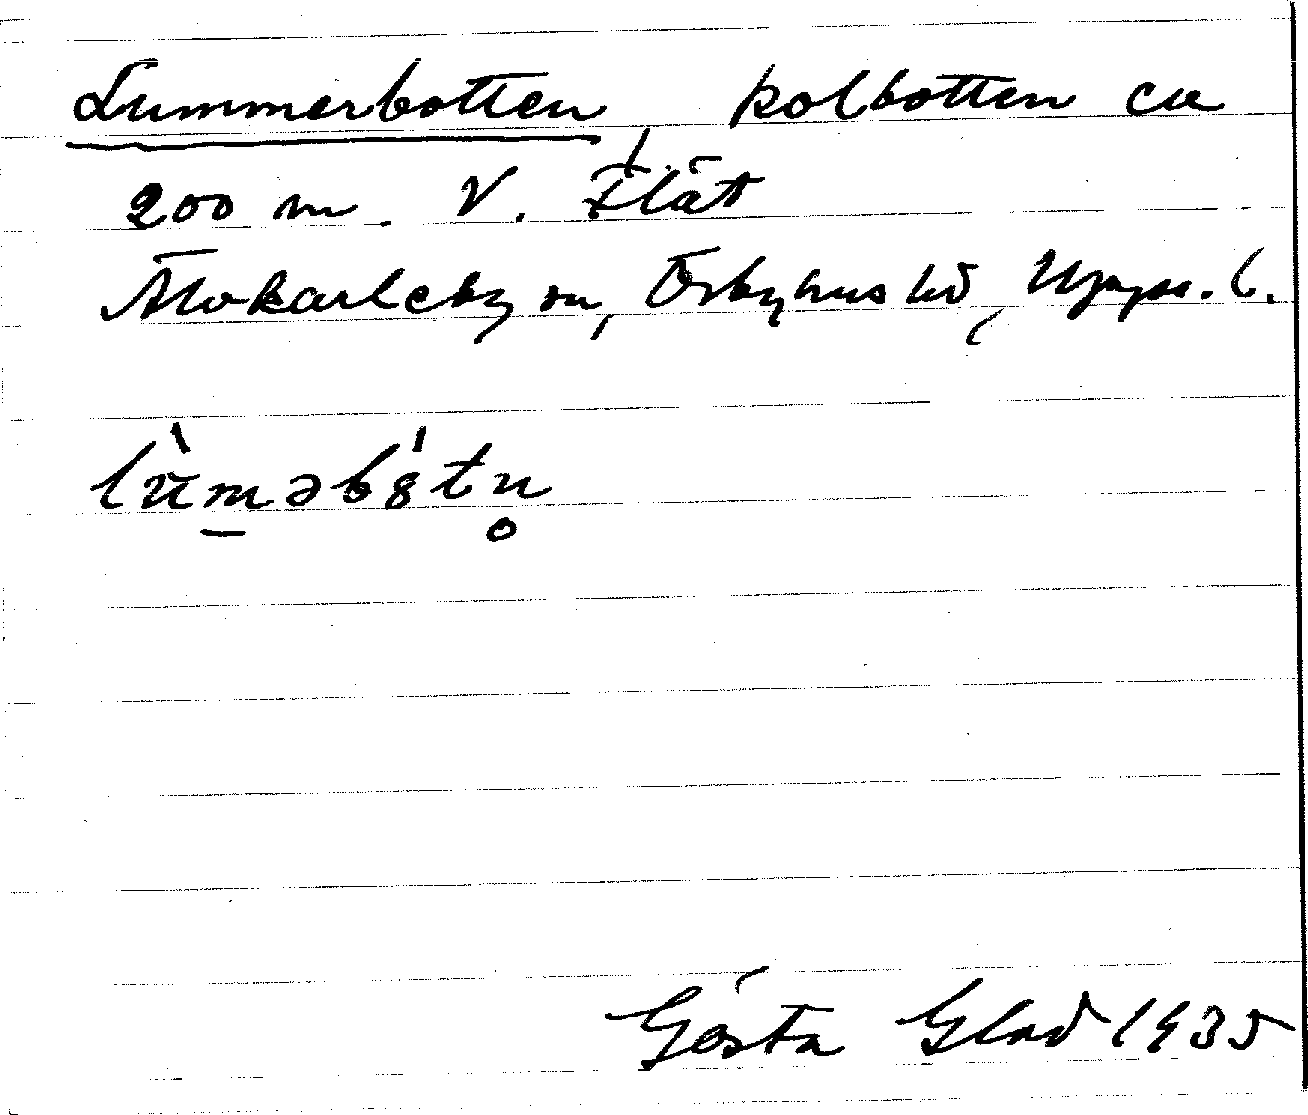 Lummerbotten, kolbotten ca
200 m. V. Flät
Älvkarleby sn, Örbyhus hd, Upps. l.
lùmǝbtn̥
Gösta Glad 1935